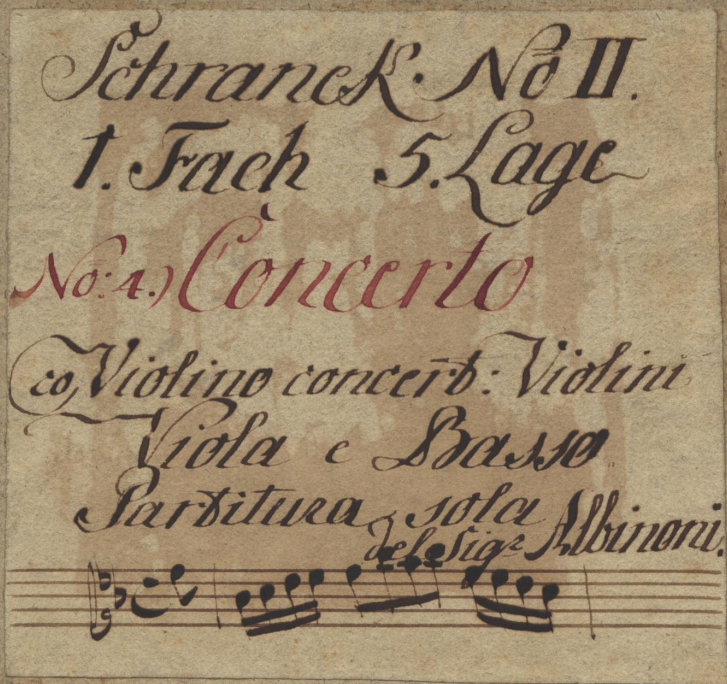 Schranck. No II.
1. Fach 5. Lage
No: 4.) Concerto
co Violino concert: Violini
Viola e Basso
Partitura sola
del Sigr Albinoni.